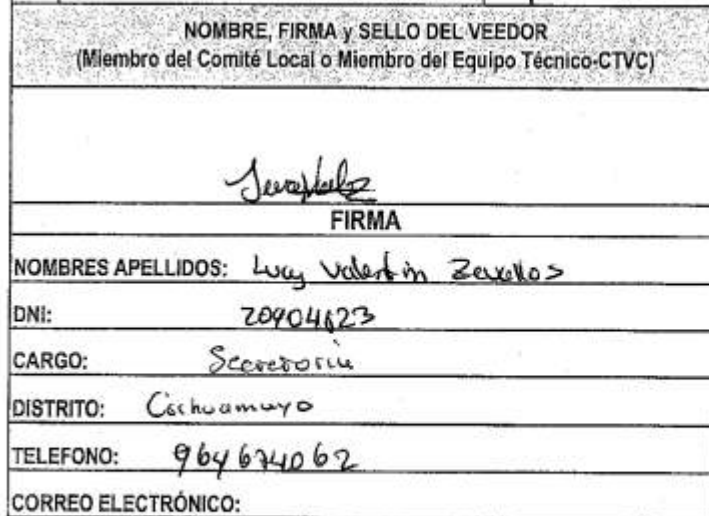 NOMBRE, FIRMA y SELLO DEL VEEDOR
(Miembro del Comité Local o Miembro del Equipo Técnico-CTVC)
FIRMA
NOMBRES APELLIDOS: Lucy Valentin Zevallos
DNI: 20904623
CARGO: Secretaria
DISTRITO: Carhuamayo
TELEFONO: 964674062
CORREO ELECTRÓNICO: